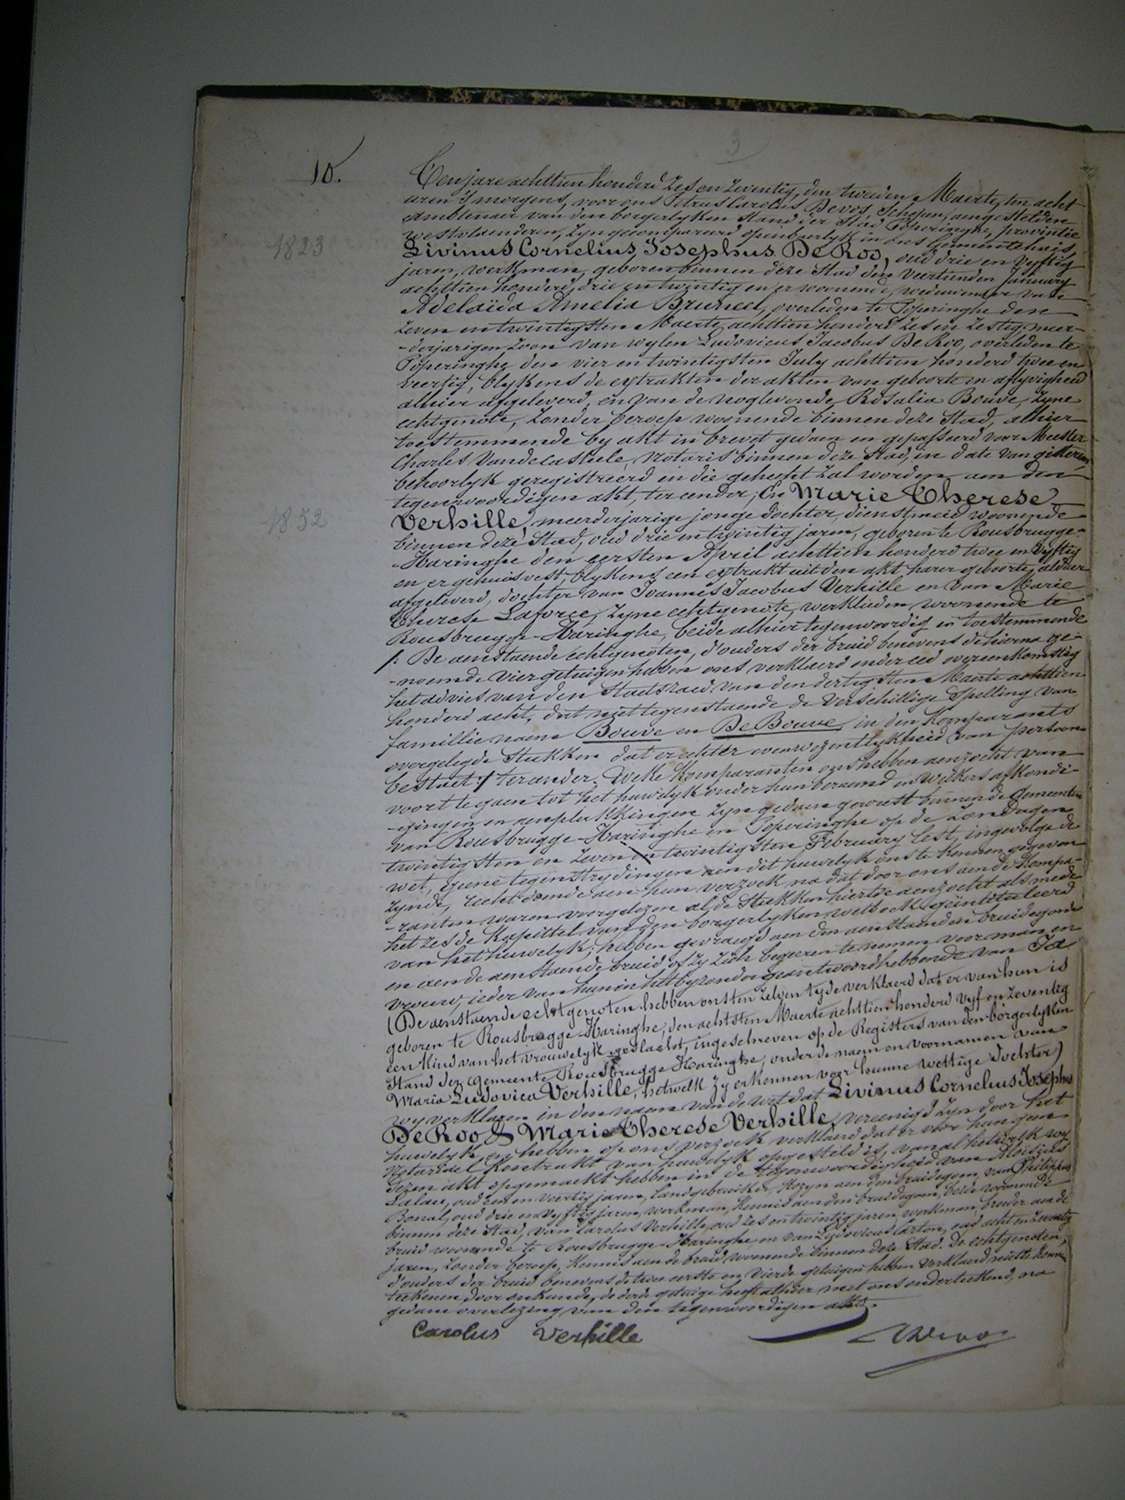 3
10.
Ten jare achttien honderd zes en zeventig, den tweeden Maerte, ten acht
uren 's morgens, voor ons Petrus Carolus Devos, Schepen, aengestelden
amblenaer van den borgerlyken Stand der Stad Poperinghe, provintie
Westvlaenderen, zyn gecompareerd openbaerlyk in ons Gemeentehuis
1823
Livinus Cornelius Josephus De Roo, oud drie en vyftig
jaren, werkman, geboren binnen deze Stad den veertienden January
achttien honderd drie en twintig en er woonend, weduwnaer van
Adelaïda Amelia Bruneel, overleden te Poperinghe den
zeven en twintigsten Maerte achttien honderd zes en zestig, meer-
-derjarigen zoon van wylen Ludovicus Jacobus De Roo, overleden te
Poperinghe den vier en twintigsten July achttien honderd twee en
veertig, blykens de extrakten der akten van geboorte en aflyvigheid
alhier afgeleverd, en van de nog levende Rosalia Bouve, zyne
echtgenote, zonder beroep woonende binnen deze Stad, alhier
toestemmende by akt in brevet gedaen en gepasseerd voor Meester
Charles Vandecasteele, Notaris binnen deze Stad, in date van gisteren,
behoorlyk geregistreerd en die gehecht zal worden aen den
tegenwoordigen akt, ter eender; En Marie Therese
1852
Verhille, meerderjarige jonge dochter, dienstmeid woonende
binnen deze Stad, oud drie en twintig jaren, geboren te Rousbrugge-
-Haringhe den eersten April achttien honderd twee en vyftig
en er gehuisvest, blykens een extrakt uit den akt harer geboorte, alhier
afgeleverd, dochter van Joannes Jacobus Verhille en van Marie
Therese Laforce, zyne echtgenote, werklieden, woonende te
Rousbrugge-Haringhe, beide alhier tegenwoordig en toestemmende
/: De aenstaende echtgenoten, d'ouders der bruid benevens de hierna ge-
-noemde vier getuigen hebben ons verklaerd onder eed overeenkomstig
het advies van den Staetsraed van den dertigsten Maerte achttien
honderd acht, dat niettegenstaende de verschillige spelling van
famillie naem Bouve en De Bouve, in den Komparants
overgelegde Stukken dat er achter eenwezentlykheid van persoon
bestaet:/ ter ander. Welke Komparanten ons hebben aenzocht van
voort te gaen tot het huwelyk onder hun beraemd en welkers afkondi-
-gingen en aenplakkingen zyn gedaen geweest binnen de Gemeenten
van Rousbrugge-Haringhe en Poperinghe op de zondagen
twintigsten en zeven en twintigsten February lest, ingevolge de
wet, geene tegenstrydingen aen dit huwelyk ons te kennen gegeven
zynde, recht doende aen hun verzoek na dat door ons aen de Kompa-
-ranten waren voorgelezen al de Stukken hiertoe aenzocht als mede
het zesde Kapittel van den borgerlyken wetboek geïntituleerd
van het huwelyk; hebben gevraegd aen den aenstaenden bruidegom
en aen de aenstaende bruid of zy zich begeeren te nemen voor man en
vrouw, ieder van hun in het byzonder geantwoord hebbende van Ja
(De aenstaende echtgenoten hebben ons ten zelven tyde verklaerd dat er van hun is
geboren te Rousbrugge-Haringhe, den achtsten Maerte achttien honderd vyf en zeventig
een Kind van het vrouwelyk geslacht, ingeschreven op de Registers van den borgerlyken
Stand der Gemeente Rousbrugge Haringhe, onder de naem en voornamen van
Maria Ludovica Verhille, hetwelk zy erkennen voor hunne wettige dochter)
wy verklaren in den naem van de wet dat Livinus Cornelius Josephus
De Roo & Marie Therese Verhille, vereenigd zyn door het
huwelyk, en hebben op ons verzoek verklaerd dat er voor hun geen
Notarieel Kontrakt van huwelyk opgesteld is, van al hetwelk wy
dezen akt opgemaekt hebben in de tegenwoordigheid van Aloïsius
Salon, oud een en veertig jaren, landgebruiker, Kozyn aen den bruidegom, van Philippus
Bonal, oud drie en vyftig jaren, werkman, Kennis aen den bruidegom, beide woonende
binnen deze Stad, van Carolus Verhille, oud zes en twintig jaren, werkman, broeder aen de
bruid woonende te Rousbrugge-Haringhe en van Ludovicus Carton, oud acht en zeventig
jaren, zonder beroep, Kennis aen de bruid woonende binnen deze Stad. De echtgenoten,
d'ouders der bruid benevens de twee eerste en vierde getuigen hebben verklaerd niet te konnen
teekenen, door onkunde, de derde getuige heeft alhier met ons onderteekend, na
gedane overlezing van den tegenwoordigen akt.
Carolus Verhille
Devos